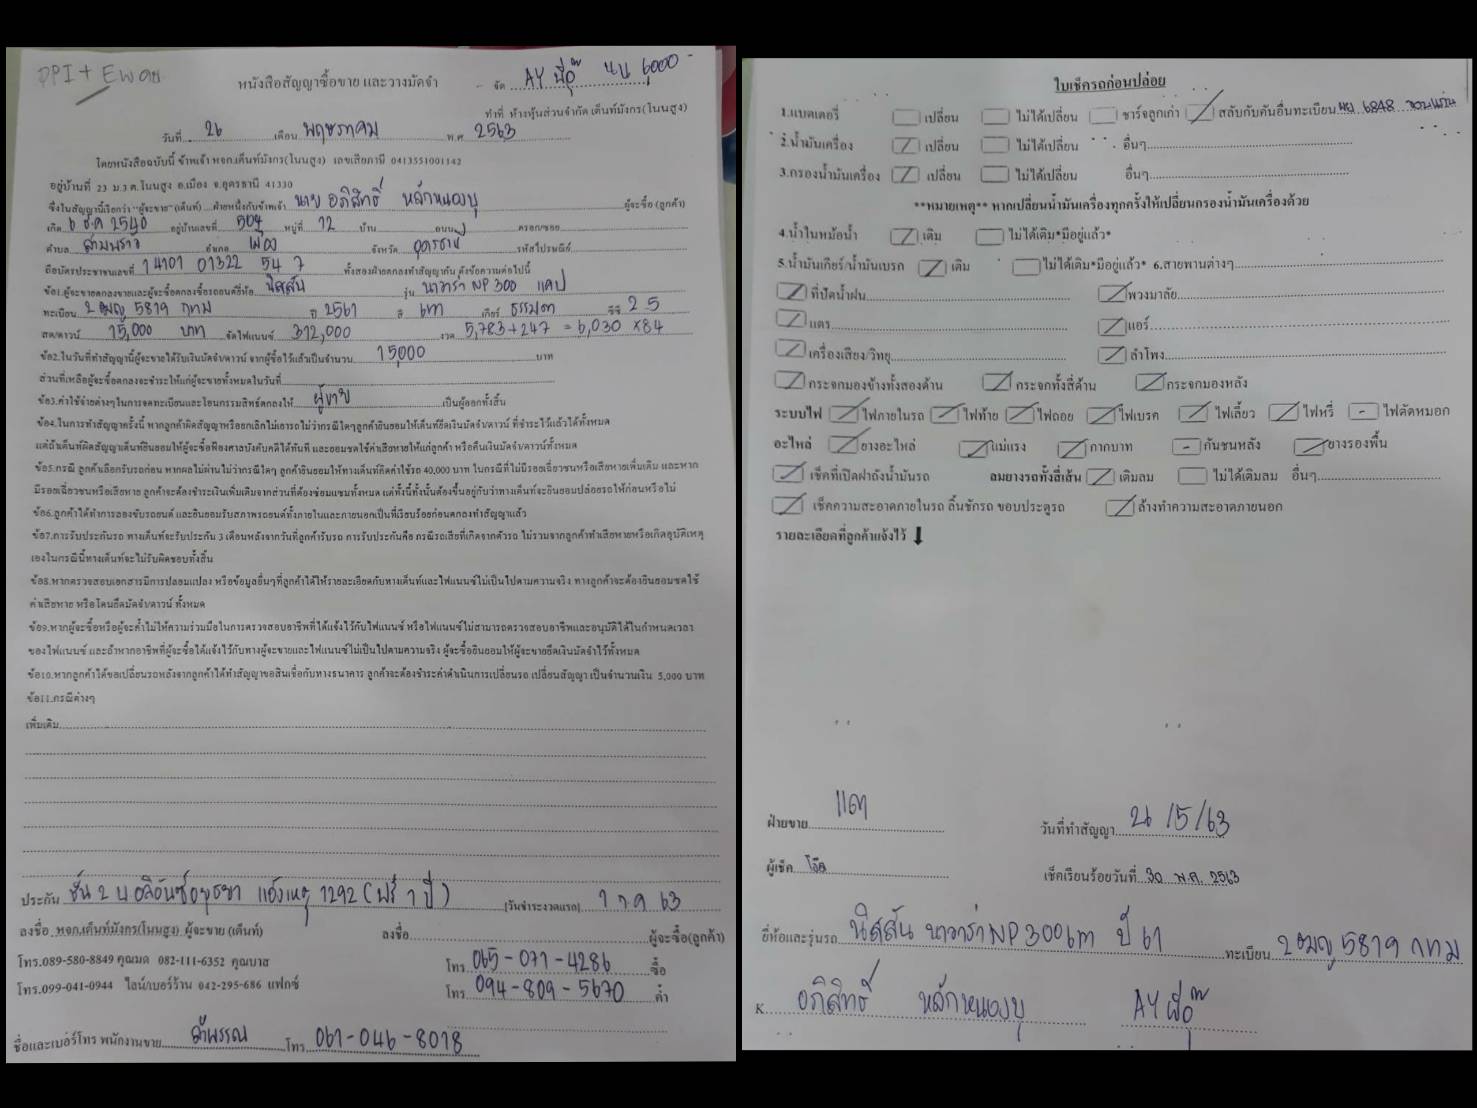 DPI + Ewฉย
หนังสือสัญญาซื้อขาย และวางมัดจำ
จัด AY พี่อุ๊ นน 6,000 -
ทำที่ ห้างหุ้นส่วนจำกัด เต็นท์มังกร(โนนสูง)
วันที่ 26 เดือน พฤษภาคม พ.ศ 2563
โดยหนังสือฉบับนี้ ข้าพเจ้า หจก.เต็นท์มังกร(โนนสูง) เลขเสียภาษี 0413551001142
อยู่บ้านที่ 23 ม.3 ต.โนนสูง อ.เมือง จ.อุดรธานี 41330
ซึ่งในสัญญานี้เรียกว่า "ผู้จะขาย"(เต็นท์) ...ฝ่ายหนึ่งกับข้าพเจ้า นาย อภิสิทธิ์ หลักหนองบุ ผู้จะซื้อ (ลูกค้า)
เกิด 6 ธ.ค 2540 อยู่บ้านเลขที่ 504 หมู่ที่ 12 บ้าน ถนน ตรอก/ซอย
ตำบล สามพร้าว อำเภอ เมือง จังหวัด อุดรธานี รหัสไปรษณีย์
ถือบัตรประชาชนเลขที่ 1 4101 01322 54 7 ทั้งสองฝ่ายตกลงทำสัญญากัน ดังข้อความต่อไปนี้
ข้อ1.ผู้จะขายตกลงขายและผู้จะซื้อตกลงซื้อรถยนต์ยี่ห้อ นิสสัน รุ่น นาวาร่า NP 300 แคป
ทะเบียน 2 ฒญ 5819 กทม ปี 2561 สี เทา เกียร์ ธรรมดา ซีซี 2.5
สด/ดาวน์ 15,000 บาท จัดไฟแนนซ์ 312,000 งวด 5,783 + 247 = 6,030 x 84
ข้อ2.ในวันที่ทำสัญญานี้ผู้จะขายได้รับเงินมัดจำ/ดาวน์ จากผู้ซื้อไว้แล้วเป็นจำนวน 15000 บาท
ส่วนที่เหลือผู้จะซื้อตกลงจะชำระให้แก่ผู้จะขายทั้งหมดในวันที่
ข้อ3.ค่าใช้จ่ายต่างๆในการจดทะเบียนและโอนกรรมสิทธิ์ตกลงให้ ผู้ขาย เป็นผู้ออกทั้งสิ้น
ข้อ4.ในการทำสัญญาครั้งนี้ หากลูกค้าผิดสัญญาหรือยกเลิกไม่เอารถไม่ว่ากรณีใดๆลูกค้ายินยอมให้เต็นท์ยึดเงินมัดจำ/ดาวน์ ที่ชำระไว้แล้วได้ทั้งหมด
แต่ถ้าเต็นท์ผิดสัญญาเต็นท์ยินยอมให้ผู้จะซื้อฟ้องศาลบังคับคดีได้ทันที และยอมชดใช้ค่าเสียหายให้แก่ลูกค้า หรือคืนเงินมัดจำ/ดาวน์ทั้งหมด
ข้อ5.กรณี ลูกค้าเลือกรับรถก่อน หากผลไม่ผ่านไม่ว่ากรณีใดๆ ลูกค้ายินยอมให้ทางเต็นท์คิดค่าใช้รถ 40,000 บาท ในกรณีที่ไม่มีรอยเฉี่ยวชนหรือเสียหายเพิ่มเติม และหาก
มีรอยเฉี่ยวชนหรือเสียหาย ลูกค้าจะต้องชำระเงินเพิ่มเติมจากส่วนที่ต้องซ่อมแซมทั้งหมด แต่ทั้งนี้ทั้งนั้นต้องขึ้นอยู่กับว่าทางเต็นท์จะยินยอมปล่อยรถให้ก่อนหรือไม่
ข้อ6.ลูกค้าได้ทำการลองขับรถยนต์ และยินยอมรับสภาพรถยนต์ทั้งภายในและภายนอกเป็นที่เรียบร้อยก่อนตกลงทำสัญญาแล้ว
ข้อ7.การรับประกันรถ ทางเต็นท์จะรับประกัน 3 เดือนหลังจากวันที่ลูกค้ารับรถ การรับประกันคือ กรณีรถเสียที่เกิดจากตัวรถ ไม่รวมจากลูกค้าทำเสียหายหรือเกิดอุบัติเหตุ
เองในกรณีนี้ทางเต็นท์จะไม่รับผิดชอบทั้งสิ้น
ข้อ8.หากตรวจสอบเอกสารมีการปลอมแปลง หรือข้อมูลอื่นๆที่ลูกค้าได้ให้รายละเอียดกับทางเต็นท์และไฟแนนซ์ไม่เป็นไปตามความจริง ทางลูกค้าจะต้องยินยอมชดใช้
ค่าเสียหาย หรือโดนยึดมัดจำ/ดาวน์ ทั้งหมด
ข้อ9.หากผู้จะซื้อหรือผู้จะค้ำไม่ให้ความร่วมมือในการตรวจสอบอาชีพที่ได้แจ้งไว้กับไฟแนนซ์ หรือไฟแนนซ์ไม่สามารถตรวจสอบอาชีพและอนุมัติได้ในกำหนดเวลา
ของไฟแนนซ์ และถ้าหากอาชีพที่ผู้จะซื้อได้แจ้งไว้กับทางผู้จะขายและไฟแนนซ์ไม่เป็นไปตามความจริง ผู้จะซื้อยินยอมให้ผู้จะขายยึดเงินมัดจำไว้ทั้งหมด
ข้อ10.หากลูกค้าได้ขอเปลี่ยนรถหลังจากลูกค้าได้ทำสัญญาขอสินเชื่อกับทางธนาคาร ลูกค้าจะต้องชำระค่าดำเนินการเปลี่ยนรถ เปลี่ยนสัญญา เป็นจำนวนเงิน 5,000 บาท
ข้อ11.กรณีต่างๆ
เพิ่มเติม
ประกัน ชั้น 2 บ.อลิอันซ์อยุธยา แจ้งเหตุ 1292 (ฟรี 1 ปี) (วันชำระงวดแรก) 1 ก.ค 63
ลงชื่อ หจก.เต็นท์มังกร(โนนสูง) ผู้จะขาย (เต็นท์) ลงชื่อ ผู้จะซื้อ(ลูกค้า)
โทร.089-580-8849 คุณมด 082-111-6352 คุณบาส โทร 065-071-4286 ซื้อ
โทร.099-041-0944 ไลน์/เบอร์ร้าน 042-295-686 แฟกซ์ โทร 094-809-5670 ค้ำ
ชื่อและเบอร์โทร พนักงานขาย ลำพรรณ โทร 061-046-8018
ใบเช็กรถก่อนปล่อย
1.แบตเตอรี่ เปลี่ยน ไม่ได้เปลี่ยน ชาร์จลูกเก่า สลับกับคันอื่นทะเบียน ผย 6848 ขอนแก่น
2.น้ำมันเครื่อง เปลี่ยน ไม่ได้เปลี่ยน อื่นๆ
3.กรองน้ำมันเครื่อง เปลี่ยน ไม่ได้เปลี่ยน อื่นๆ
**หมายเหตุ** หากเปลี่ยนน้ำมันเครื่องทุกครั้งให้เปลี่ยนกรองน้ำมันเครื่องด้วย
4.น้ำในหม้อน้ำ เติม ไม่ได้เติม*มีอยู่แล้ว*
5.น้ำมันเกียร์/น้ำมันเบรค เติม ไม่ได้เติม*มีอยู่แล้ว* 6.สายพานต่างๆ
ที่ปัดน้ำฝน พวงมาลัย
แตร แอร์
เครื่องเสียง/วิทยุ ลำโพง
กระจกมองข้างทั้งสองด้าน กระจกทั้งสี่ด้าน กระจกมองหลัง
ระบบไฟ ไฟภายในรถ ไฟท้าย ไฟถอย ไฟเบรค ไฟเลี้ยว ไฟหรี่ - ไฟตัดหมอก
อะไหล่ ยางอะไหล่ แม่แรง กากบาท - กันชนหลัง ยางรองพื้น
เช็คที่เปิดฝาถังน้ำมันรถ ลมยางรถทั้งสี่เส้น เติมลม ไม่ได้เติมลม อื่นๆ
เช็คความสะอาดภายในรถ ลิ้นชักรถ ขอบประตูรถ ล้างทำความสะอาดภายนอก
รายละเอียดที่ลูกค้าแจ้งไว้
ฝ่ายขาย แตง วันที่ทำสัญญา 26 /5/63
ผู้เช็ค โจ๊ด เช็คเรียบร้อยวันที่ 30 พ.ค. 2563
ยี่ห้อและรุ่นรถ นิสสัน นาวาร่า NP 300 เทา ปี 61 ทะเบียน 2 ฒญ 5819 กทม
K อภิสิทธิ์ หลักหนองบุ AY พี่อุ๊